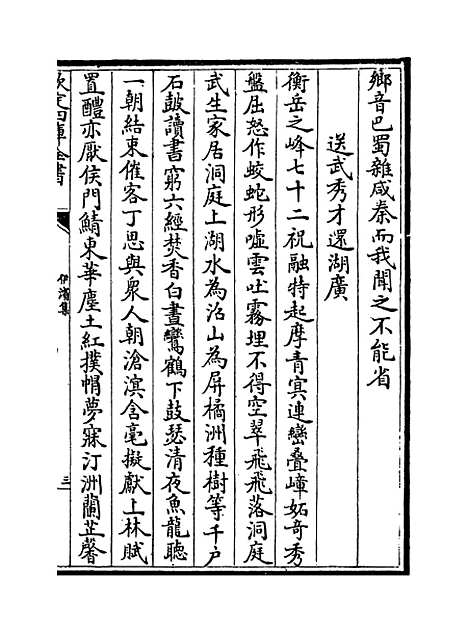 鄉音巴蜀雜咸秦而我聞之不能省
送武秀才還湖廣
衡岳之峰七十二祝融特起摩青冥連巒叠嶂妬奇秀
盤屈怒作蛟蛇形噓雲吐霧埋不得空翠飛飛落洞庭
武生家居洞庭上湖水為沼山為屏橘洲種樹等千户
石皷讀書窮六經焚香白晝鸞鶴下鼓瑟清夜魚龍聽
一朝結束催客丁思與衆人朝滄溟含毫擬獻上林賦
置醴亦厭侯門鯖東華塵土紅撲帽夢寐汀洲蘭芷馨
欽定四庫全書
伊濱集
三